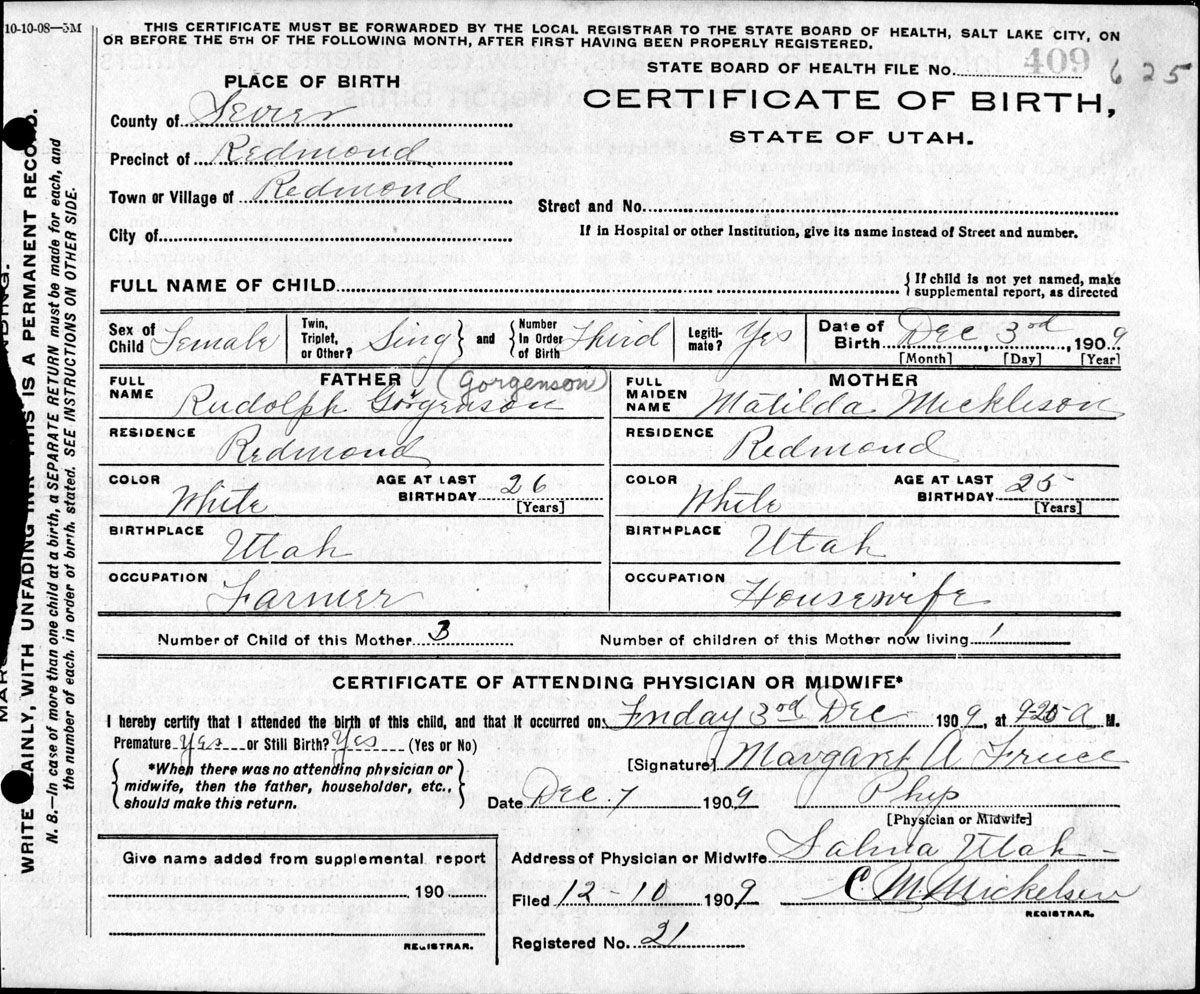 10-10-08—5M
THIS CERTIFICATE MUST BE FORWARDED BY THE LOCAL REGISTRAR TO THE STATE BOARD OF HEALTH, SALT LAKE CITY, ON
OR BEFORE THE 5TH OF THE FOLLOWING MONTH, AFTER FIRST HAVING BEEN PROPERLY REGISTERED.
STATE BOARD OF HEALTH FILE No. 409 625
PLACE OF BIRTH
CERTIFICATE OF BIRTH,
STATE OF UTAH.
County of Sevier
Precinct of Redmond
Town or Village of Redmond
Street and No.
City of
If in Hospital or other Institution, give its name instead of Street and number.
FULL NAME OF CHILD
{ If child is not yet named, make
supplemental report, as directed
Sex of Child Female
Twin, Triplet, or Other? Sing } and { Number In Order of Birth Third
Legiti-mate? Yes
Date of Birth Dec 3rd, 1909
[Month] [Day] [Year]
FATHER
FULL NAME Rudolph Gorgenson (Gorgenson)
MOTHER
FULL MAIDEN NAME Matilda Mickleson
RESIDENCE Redmond
RESIDENCE Redmond
COLOR White AGE AT LAST BIRTHDAY 26 [Years]
COLOR White AGE AT LAST BIRTHDAY 25 [Years]
BIRTHPLACE Utah
BIRTHPLACE Utah
OCCUPATION Farmer
OCCUPATION Housewife
Number of Child of this Mother 3
Number of children of this Mother now living 1
CERTIFICATE OF ATTENDING PHYSICIAN OR MIDWIFE*
I hereby certify that I attended the birth of this child, and that it occurred on Friday 3rd Dec 1909, at 925 A M.
Premature Yes or Still Birth? Yes (Yes or No)
{ *When there was no attending physician or
midwife, then the father, householder, etc.,
should make this return. }
[Signature] Margaret A
Date Dec. 7 1909 Phys
[Physician or Midwife]
Give name added from supplemental report
Address of Physician or Midwife Salina Utah
190
Filed 12-10 1909 C. M. Mickelsen
REGISTRAR.
REGISTRAR.
Registered No. 21
WRITE PLAINLY, WITH UNFADING INK THIS IS A PERMANENT RECORD.
N. B.—In case of more than one child at a birth, a SEPARATE RETURN must be made for each, and
the number of each, in order of birth, stated. SEE INSTRUCTIONS ON OTHER SIDE.